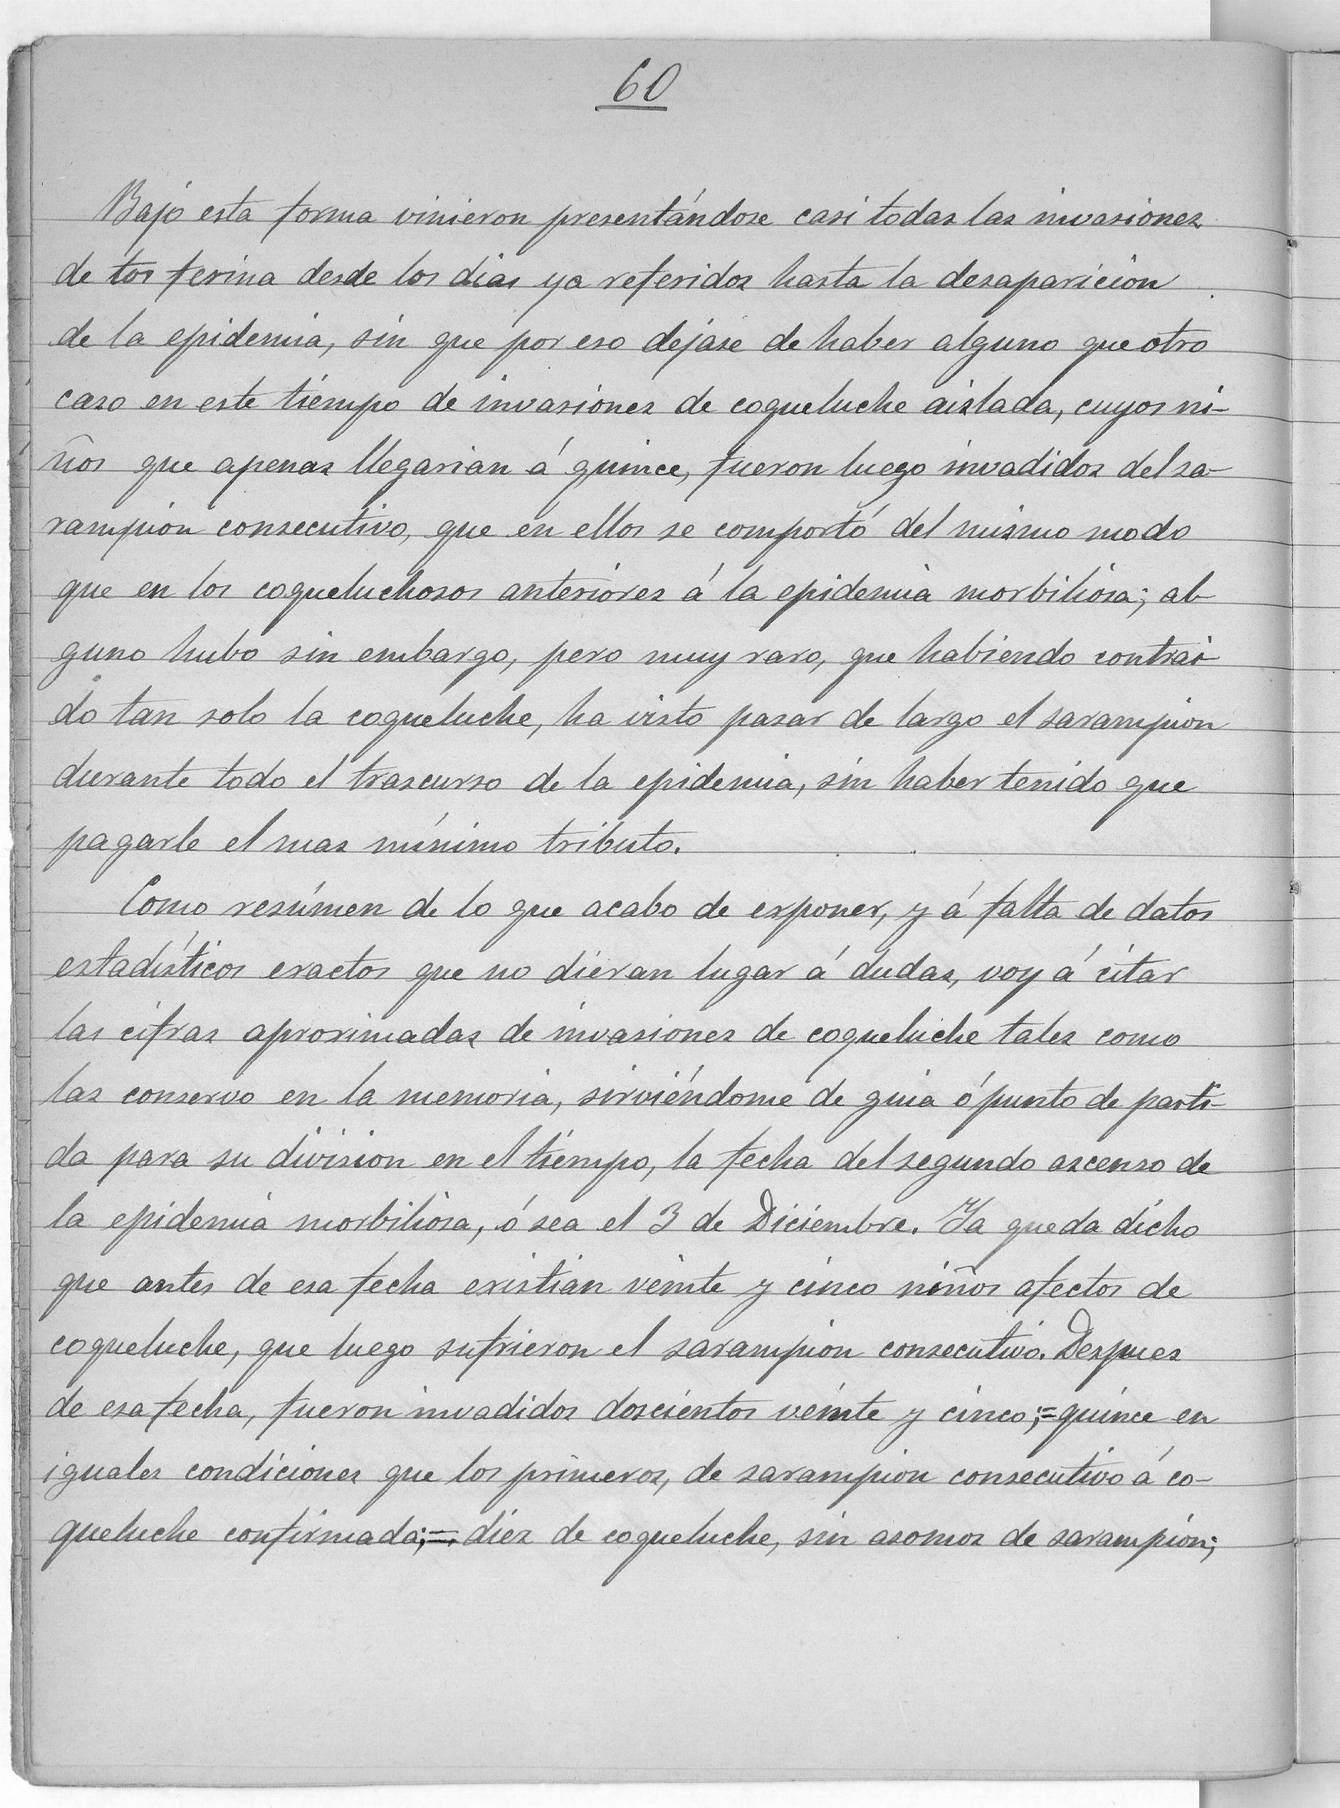 60
Bajo esta forma vinieron presentándose casi todas las invasiones
de tos ferina desde los dias ya referidos hasta la desaparicion
de la epidemia, sin que por eso dejase de haber alguno que otro
caso en este tiempo de invasiones de coqueluche aislada, cuyos ni-
ños que apenas llegarian á quince, fueron luego invadidos del sa-
rampion consecutivo, que en ellos se comportó del mismo modo
que en los coqueluchosos anteriores á la epidemia morbiliosa; al-
guno hubo sin embargo, pero muy raro, que habiendo contrai-
do tan solo la coqueluche, ha visto pasar de largo el sarampion
durante todo el trascurso de la epidemia, sin haber tenido que
pagarle el mas mínimo tributo.
Como resúmen de lo que acabo de exponer, y á falta de datos
estadísticos exactos que no dieran lugar á dudas, voy á citar
las cifras aproximadas de invasiones de coqueluche tales como
las conservo en la memoria, sirviéndome de guia ó punto de parti-
da para su division en el tiempo, la fecha del segundo ascenso de
la epidemia morbiliosa, ó sea el 3 de Diciembre. Ya queda dicho
que antes de esa fecha existian veinte y cinco niños afectos de
coqueluche, que luego sufrieron el sarampion consecutivo. Despues
de esa fecha, fueron invadidos doscientos veinte y cinco;=quince en
iguales condiciones que los primeros, de sarampion consecutivo á co-
queluche confirmada;= diez de coqueluche, sin asomos de sarampion;